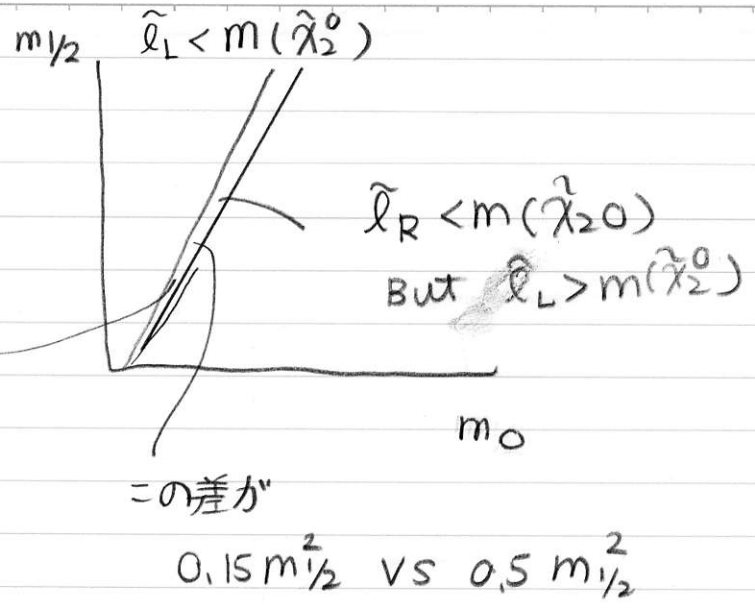 m1/2 ℓ̃L < m(χ̃₂⁰)
ℓ̃R < m(χ̃₂0)
But ℓ̃L > m(χ̃₂⁰)
m0
この差が
0.15 m²1/2 vs 0.5 m²1/2